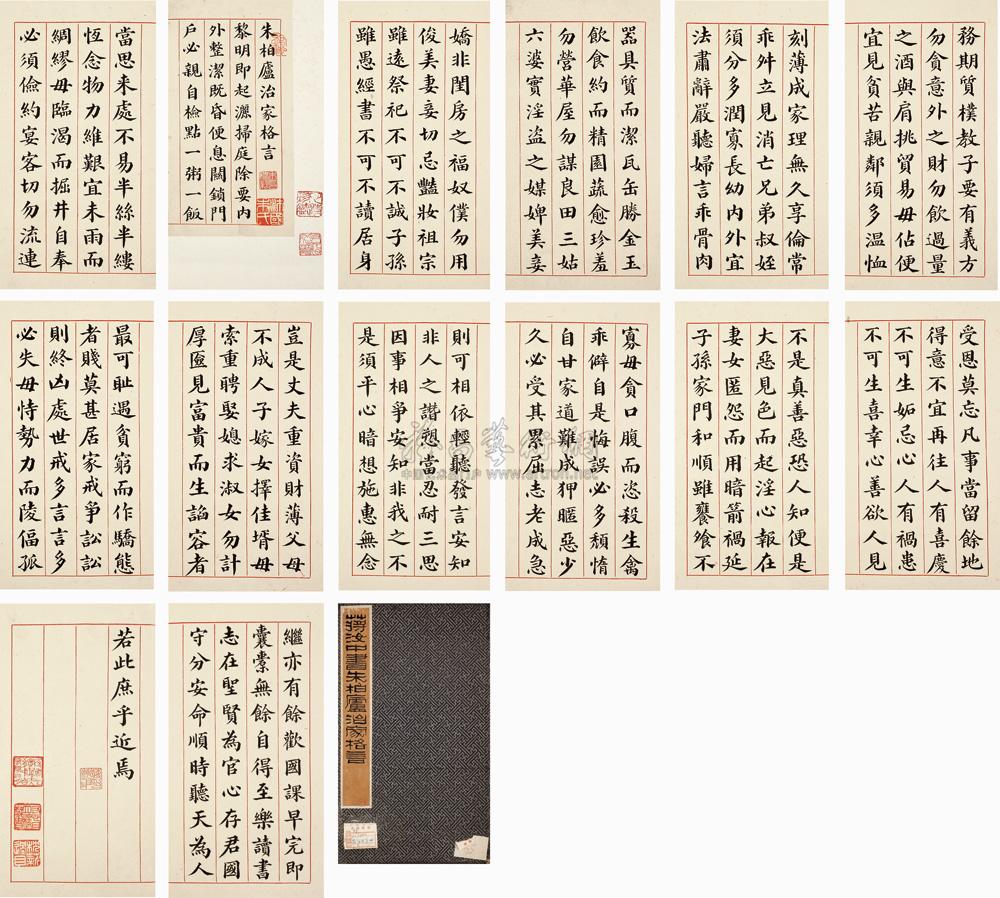 朱柏廬治家格言
黎明即起灑掃庭除要内
外整潔既昏便息關鎖門
戶必親自檢點一粥一飯
當思来處不易半絲半縷
恆念物力維艱宜未雨而
綢繆毋臨渴而掘井自奉
必須儉約宴客切勿流連
器具質而潔瓦缶勝金玉
飲食約而精園蔬愈珍羞
勿營華屋勿謀良田三姑
六婆實淫盜之媒婢美妾
嬌非閨房之福奴僕勿用
俊美妻妾切忌豔妝祖宗
雖遠祭祀不可不誠子孫
雖愚經書不可不讀居身
務期質樸教子要有義方
勿貪意外之財勿飲過量
之酒與肩挑貿易毋佔便
宜見貧苦親鄰須多温恤
刻薄成家理無久享倫常
乖舛立見消亡兄弟叔姪
須分多潤寡長幼内外宜
法肅辭嚴聽婦言乖骨肉
豈是丈夫重資財薄父母
不成人子嫁女擇佳壻毋
索重聘娶媳求淑女勿計
厚匳見富貴而生諂容者
最可恥遇貧窮而作驕態
者賤莫甚居家戒爭訟訟
則終凶處世戒多言言多
必失毋恃勢力而陵偪孤
寡毋貪口腹而恣殺生禽
乖僻自是悔誤必多頹惰
自甘家道難成狎暱惡少
久必受其累屈志老成急
則可相依輕聽發言安知
非人之譖愬當忍耐三思
因事相爭安知非我之不
是須平心暗想施惠無念
受恩莫忘凡事當留餘地
得意不宜再往人有喜慶
不可生妬忌心人有禍患
不可生喜幸心善欲人見
不是真善惡恐人知便是
大惡見色而起淫心報在
妻女匿怨而用暗箭禍延
子孫家門和順雖饔飧不
繼亦有餘歡國課早完即
囊橐無餘自得至樂讀書
志在聖賢為官心存君國
守分安命順時聽天為人
若此庶乎近焉
蔣汝中書朱柏廬治家格言